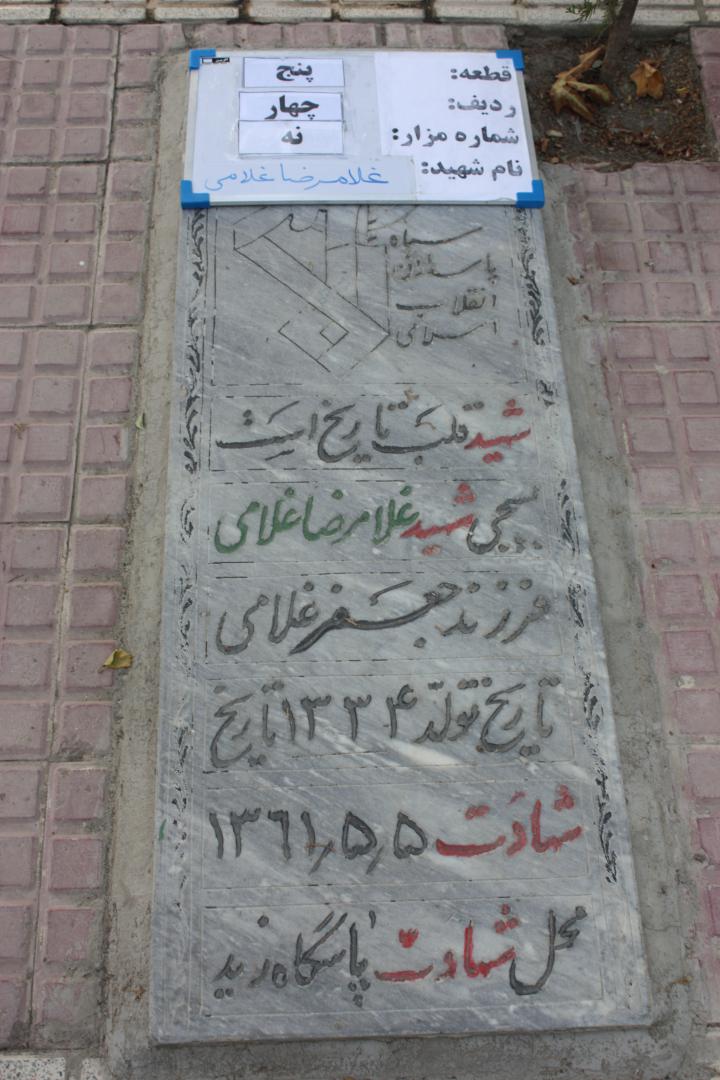 قطعه: پنج
ردیف: چهار
شماره مزار: نه
نام شهید: غلامرضا غلامی
سپاه
پاسداران
انقلاب
اسلامی
شهید قلب تاریخ است
بسیجی شهید غلامرضا غلامی
فرزند جعفر غلامی
تاریخ تولد ۱۳۳۴ تاریخ
شهادت ۱۳۶۱/۵/۵
محل شهادت پاسگاه زید